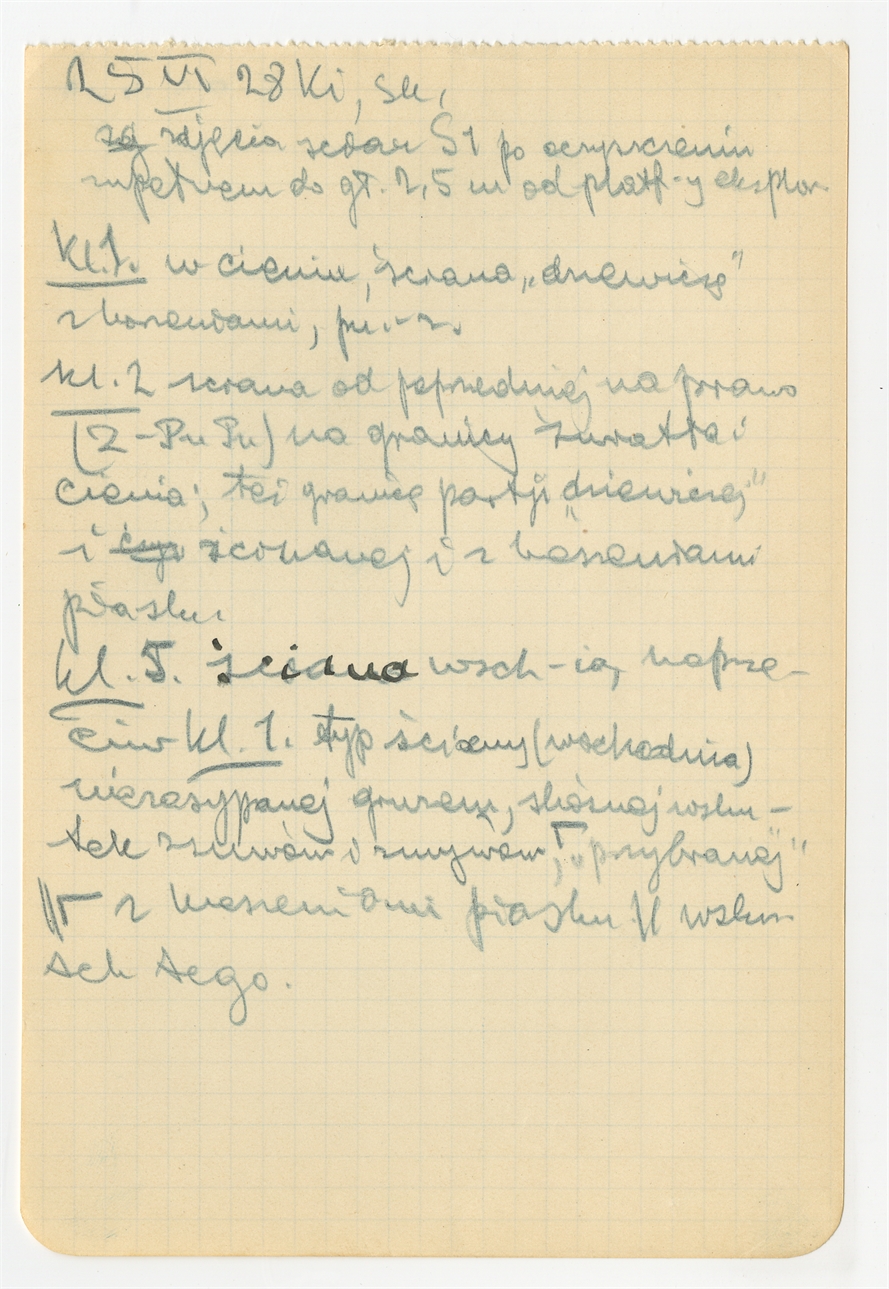 25 VI 28 Ki, Sk,
są zdjęcia ścian S1 po oczyszczeniu
zupełnem do gł. 2,5 m od platf-y eksplor.
Kl.1. w cieniu, ściana „dziewicza"
z kieszeniami,
kl. 2 ściana od poprzedniej na prawo
(Z-Pn Pn) na granicy światła i
cienia; też granicę partji „dziewiczej"
i ścinanej i z kieszeniami
piasku
kl. 5. ściana wsch-ia, naprze-
ciw kl. 1. typ ściany (wschodnia)
niezasypanej gruzem, skośnej wsku-
tek zsuwów i zmywów, „przybranej"
z kieszeniami piasku // wsku-
tek tego.